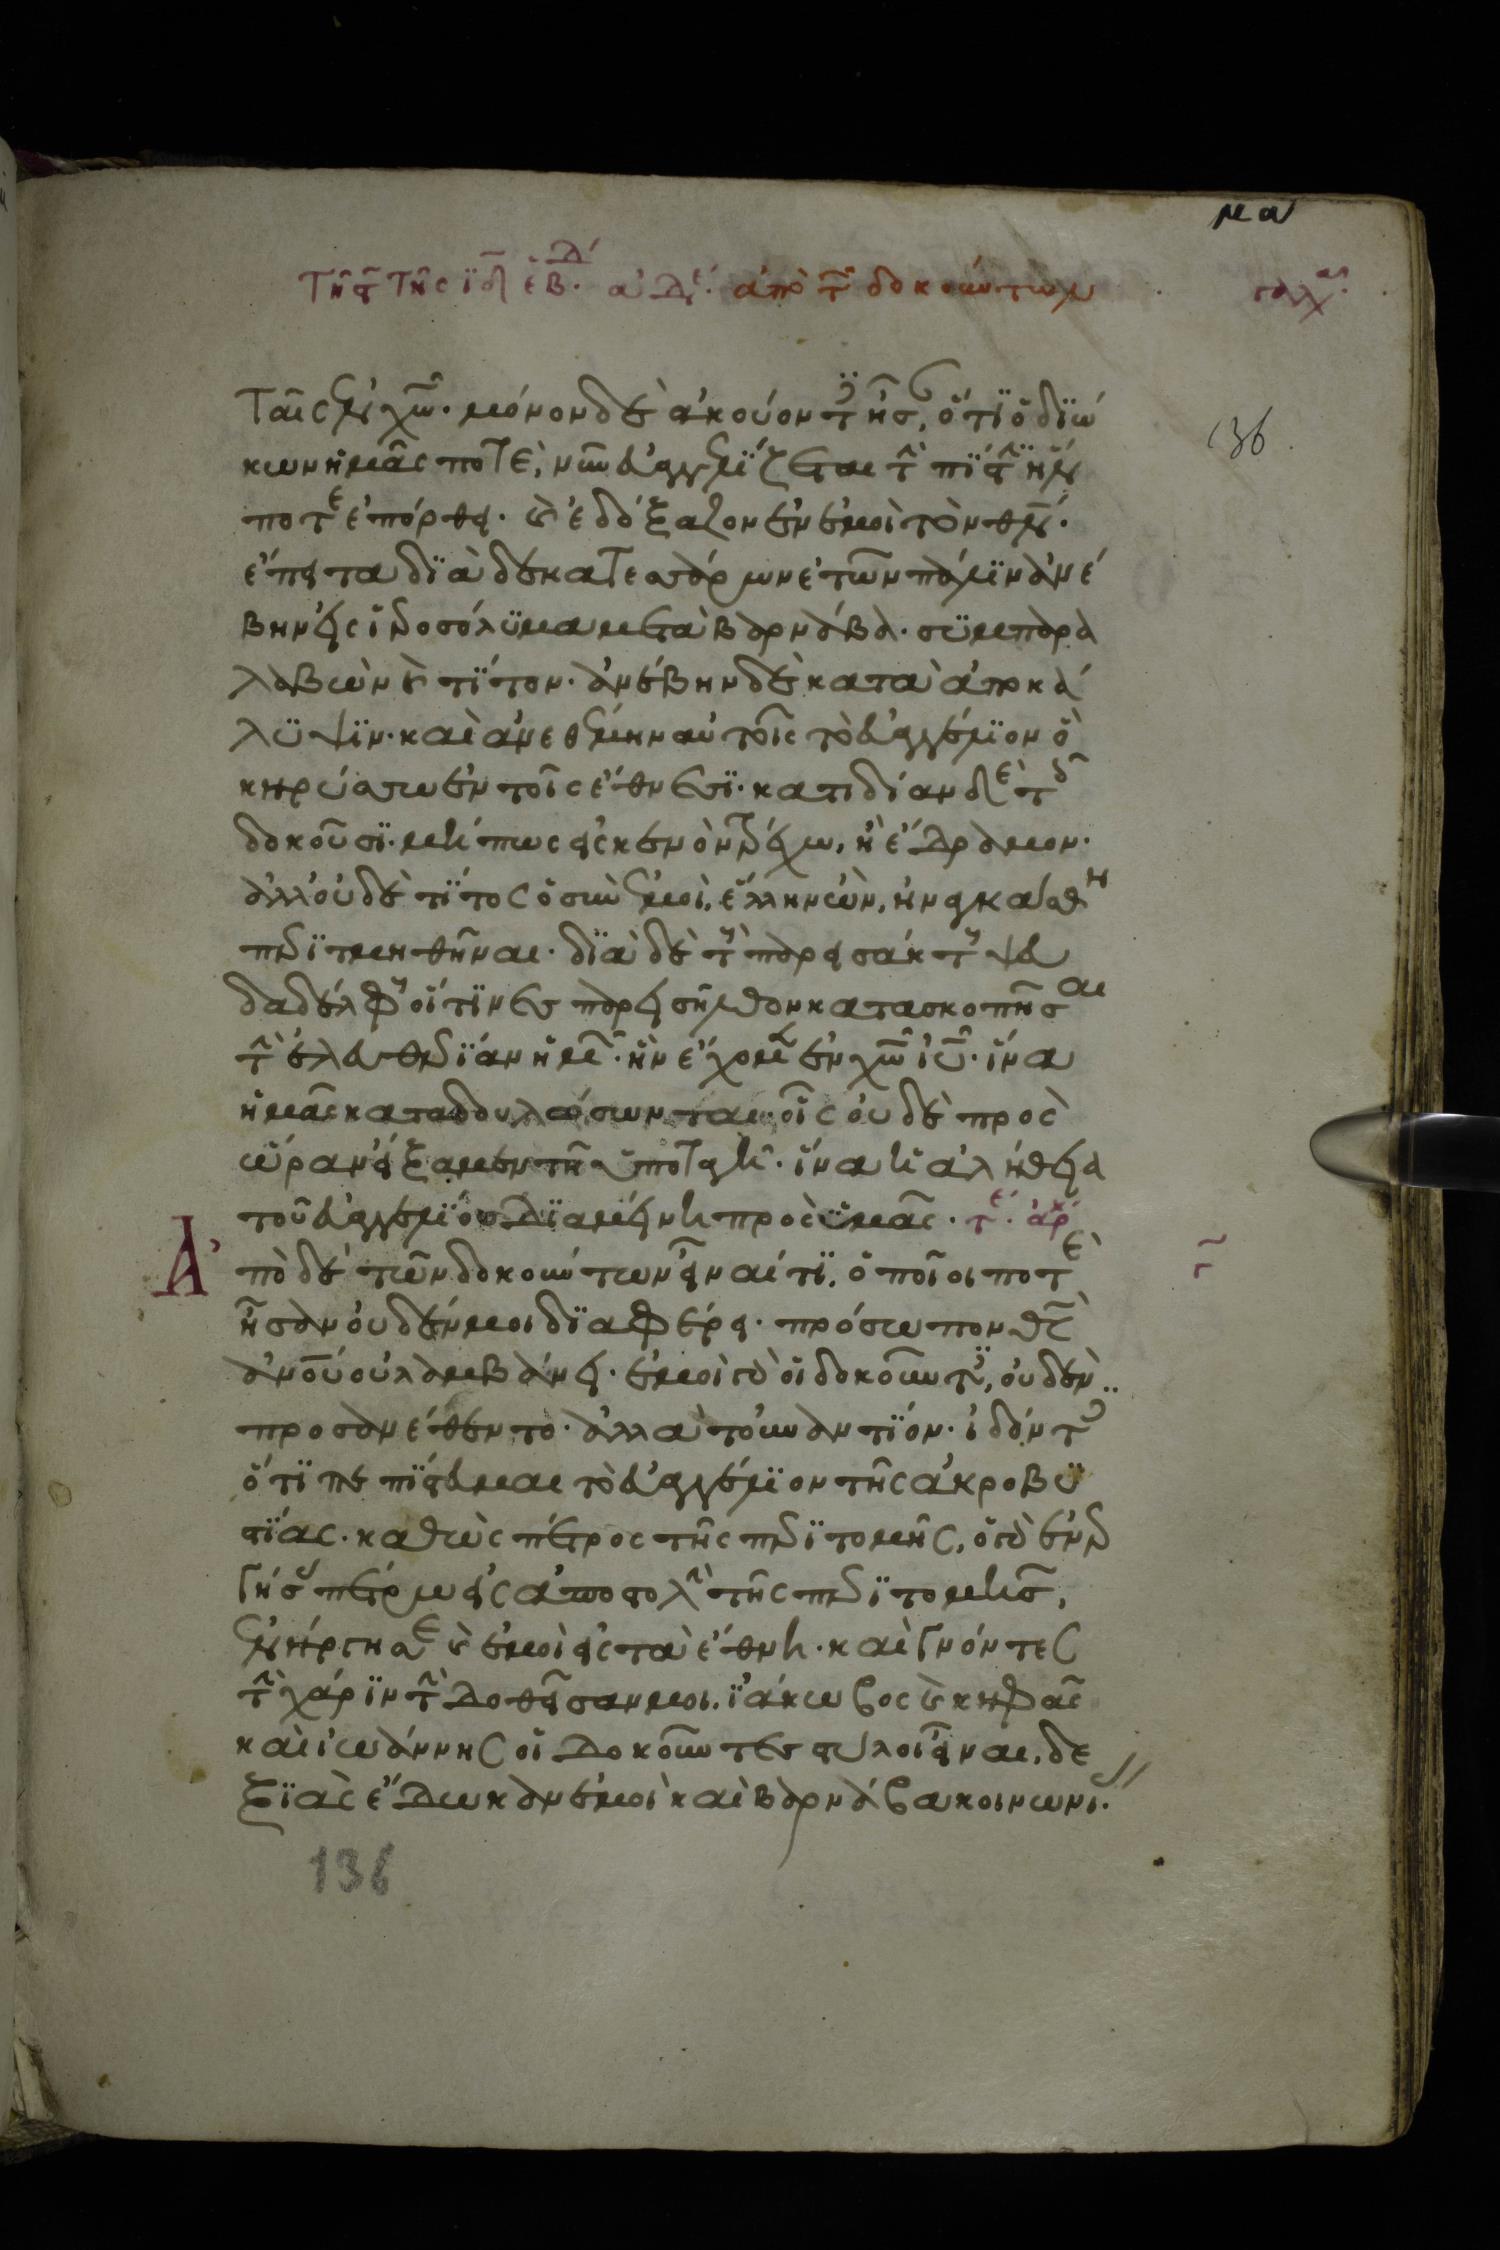 μα
ἀπὸ τῶν δοκούντων
136
ταῖς ἐν χω. μόνον δὲ ἀκούοντες ἦσαν, ὅτι ὁ διώ
κων ἡμᾶς ποτὲ, νῦν εὐαγγελίζεται τὴν πίστιν ἥν
ποτε ἐπόρθει. καὶ ἐδόξαζον ἐν ἐμοὶ τὸν θν.
ἔπειτα διὰ δεκατεσσάρων ἐτῶν πάλιν ἀνέ
βην εἰς ἱεροσόλυμα μετὰ βαρνάβα. συμπαρα
λαβὼν καὶ τίτον. ἀνέβην δὲ κατὰ ἀποκά
λυψιν. καὶ ἀνεθέμην αὐτοῖς τὸ εὐαγγέλιον ὃ
κηρύσσω ἐν τοῖς ἔθνεσι. κατιδίαν δὲ τοῖς
δοκοῦσι. μήπως εἰς κενὸν τρέχω, ἢ ἔδραμον.
ἀλλ' οὐδὲ τίτος ὁ σὺν ἐμοὶ, ἕλλην ὢν, ἠναγκάσθη
περιτμηθῆναι. διὰ δὲ τοὺς παρεισάκτους ψευ
δαδέλφους οἵτινες παρεισῆλθον κατασκοπῆσαι
τὴν ἐλευθερίαν ἡμῶν. ἣν ἔχομεν ἐν χω ιυ. ἵνα
ἡμᾶς καταδουλώσωνται. οἷς οὐδὲ πρὸς
ὥραν εἴξαμεν τῇ ὑποταγῇ. ἵνα ἡ ἀλήθεια
τοῦ εὐαγγελίου διαμείνη πρὸς ὑμᾶς. τε. ἀρχ
Ἀπὸ δὲ τῶν δοκούντων εἶναί τι, ὁποῖοι ποτὲ
ἦσαν οὐδέν μοι διαφέρει. πρόσωπον θς
ἀνου οὐ λαμβάνει. ἐμοὶ γὰρ οἱ δοκοῦντες, οὐδὲν
προσανέθεντο. ἀλλὰ τοὐναντίον. ἰδόντες
ὅτι πεπίστευμαι τὸ εὐαγγέλιον τῆς ἀκροβυ
στίας. καθὼς πέτρος τῆς περιτομῆς, ὁ γὰρ ἐνερ
γήσας πέτρω εἰς ἀποστολὴν τῆς περιτομῆς,
ἐνήργησε καὶ ἐμοὶ εἰς τὰ ἔθνη. καὶ γνόντες
τὴν χάριν τὴν δοθεῖσαν μοι. ἰάκωβος καὶ κηφᾶς
καὶ ἰωάννης οἱ δοκοῦντες στύλοι εἶναι, δε
ξιὰς ἔδωκαν ἐμοὶ καὶ βαρνάβα κοινωνι.
136